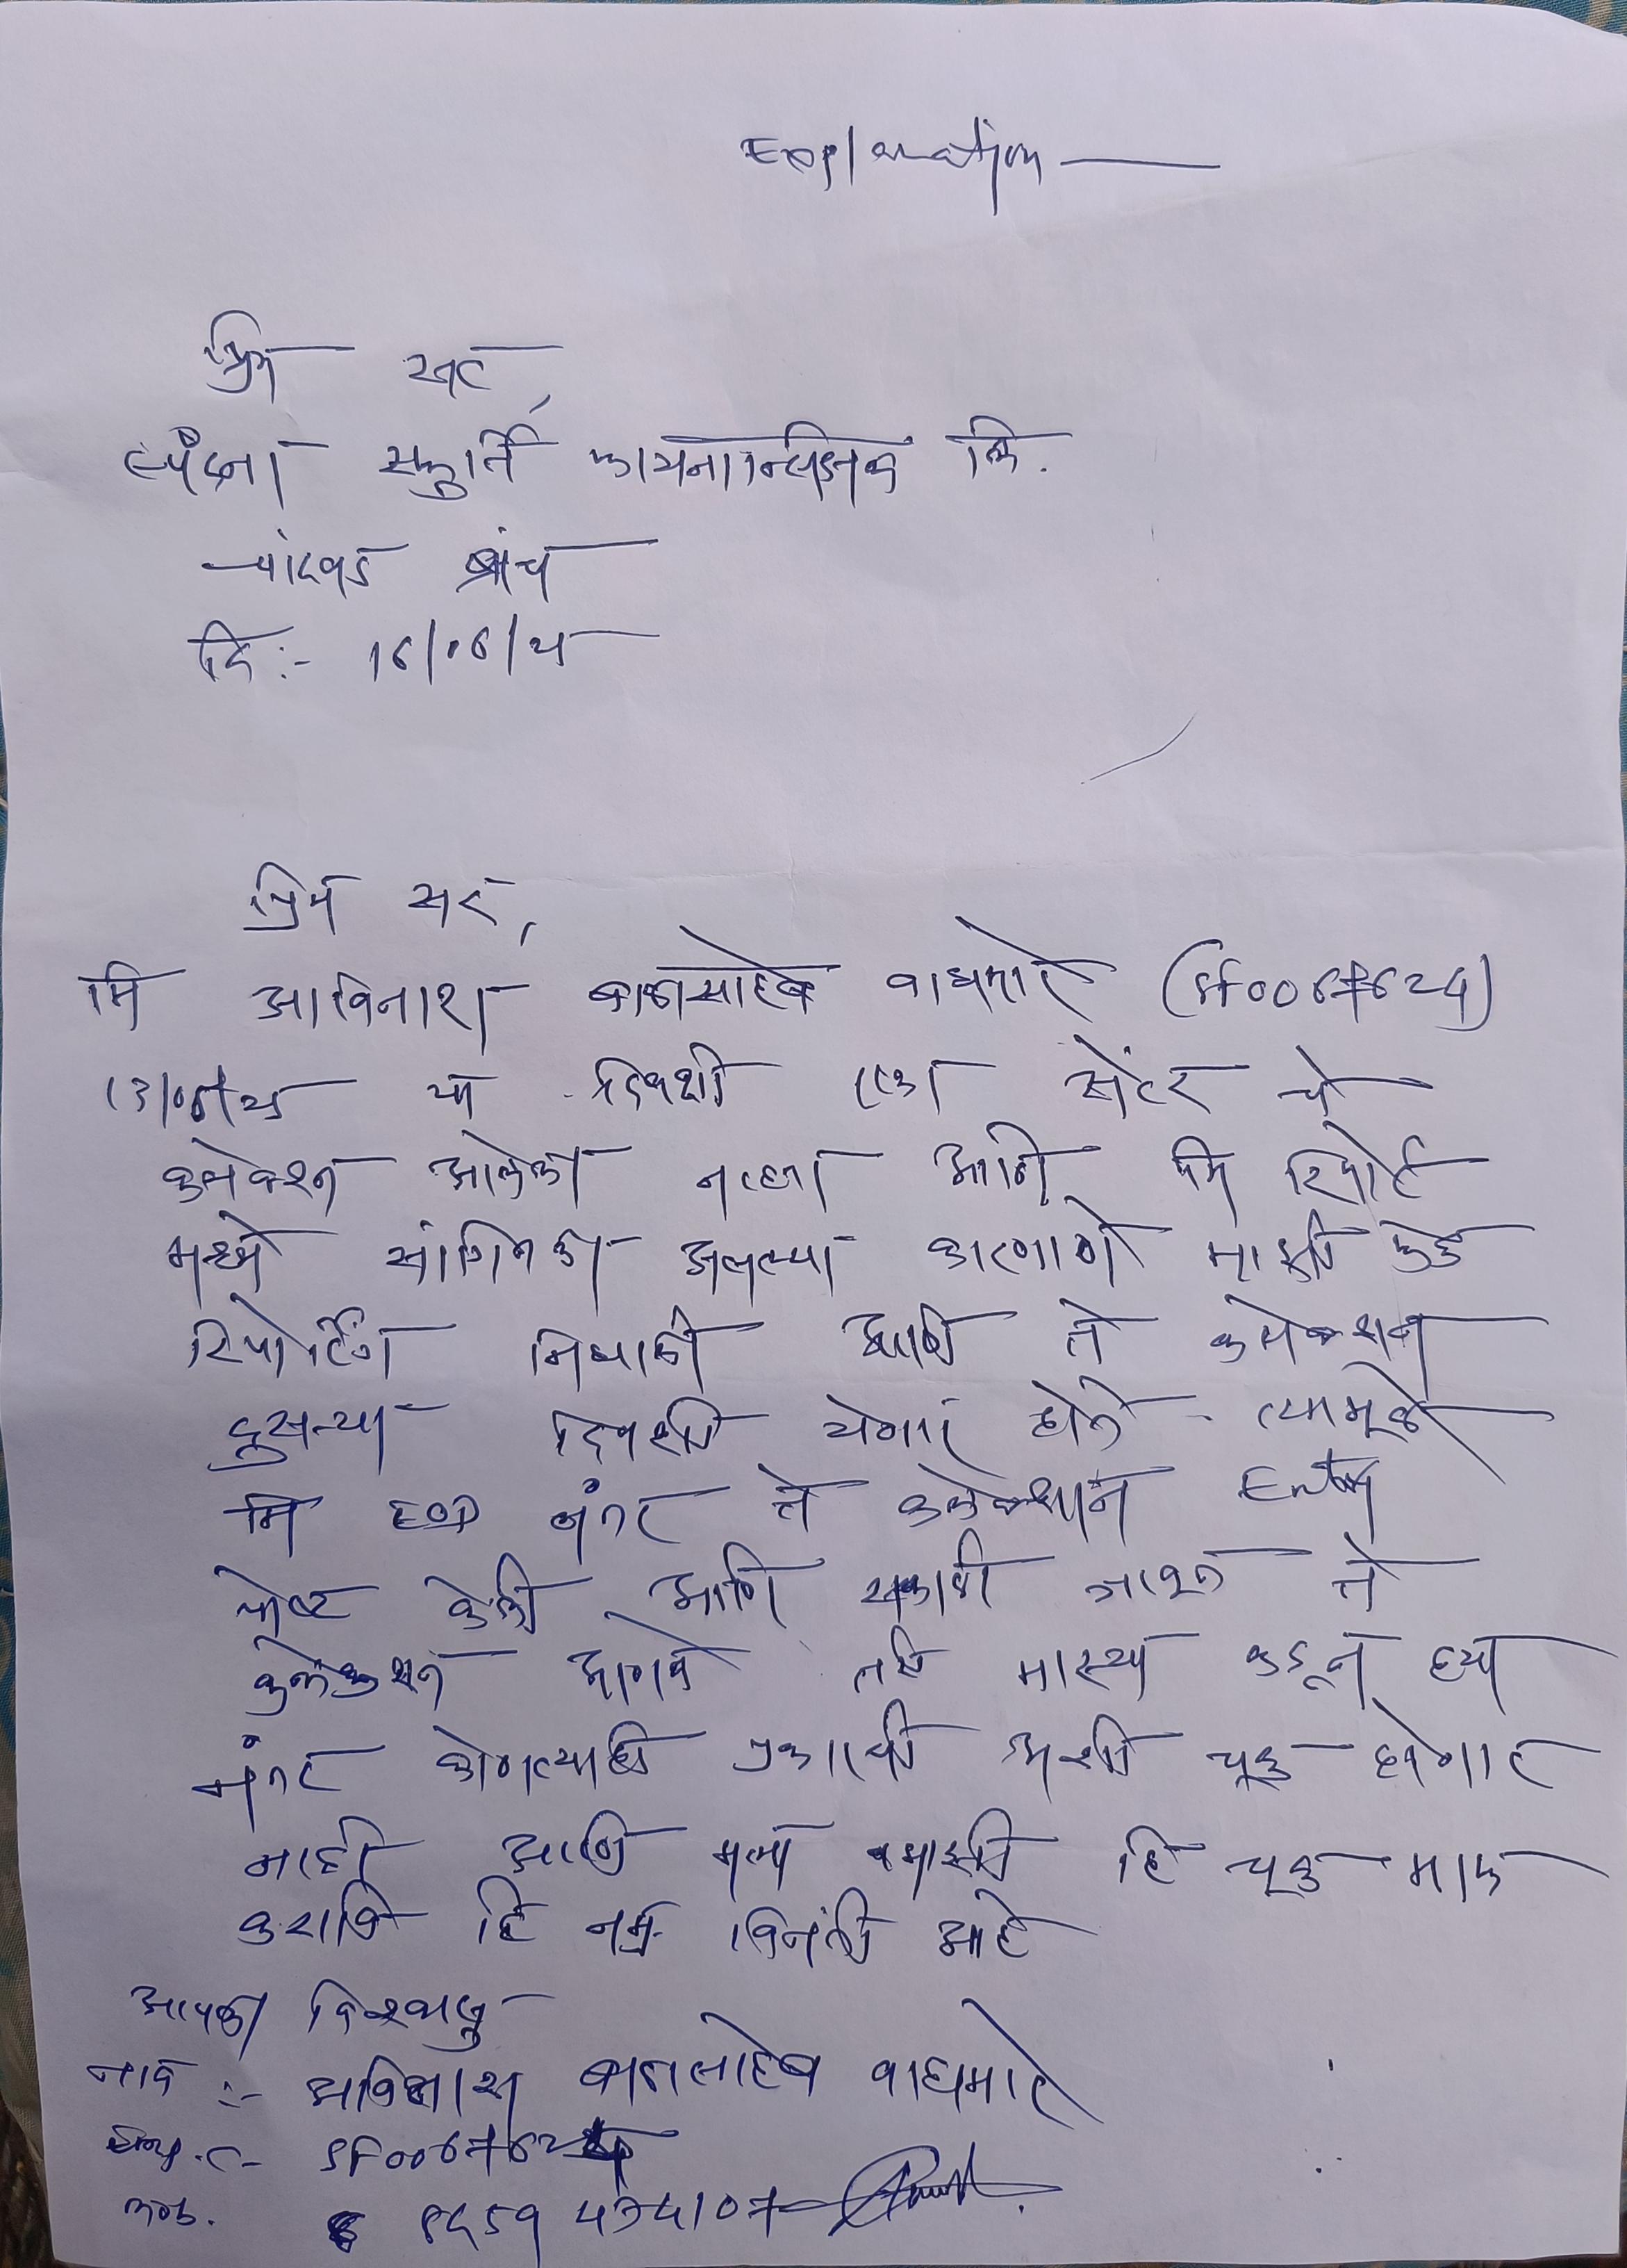 Explanation
प्रिय सर,
स्पंदना स्फुर्ति फायनान्सिअल लि.
चांदवड ब्रांच
दि :- 16/06/25
प्रिय सर,
मि आविनाश बाळासाहेब वाघमारे (SF0067624)
13/06/25 या दिवशी एका सेंटर चे
कलेक्शन आलेला नव्हता आणि मि रिपोर्ट
मध्ये सांगितला असल्या कारणाणे माझी
रिपोर्टिंग निघाली आणि ते कलेक्शन
दुसऱ्या दिवशी येणार होते. त्यामूळे
मि EOD नंतर ते कलेक्शन Entry
पोस्ट केली आणि सकाळी जाऊन ते
कलेक्शन आणले तरी माझ्या कडून ह्या
नंतर कोणत्याही प्रकारची अशी चूक होणार
नाही आणि मला माझी हि चूक माफ
करावि हि नम्र विनंती आहे
आपला विश्वासू
नाव :- अविनाश बाळासाहेब वाघमारे
SF0067624
मोब.